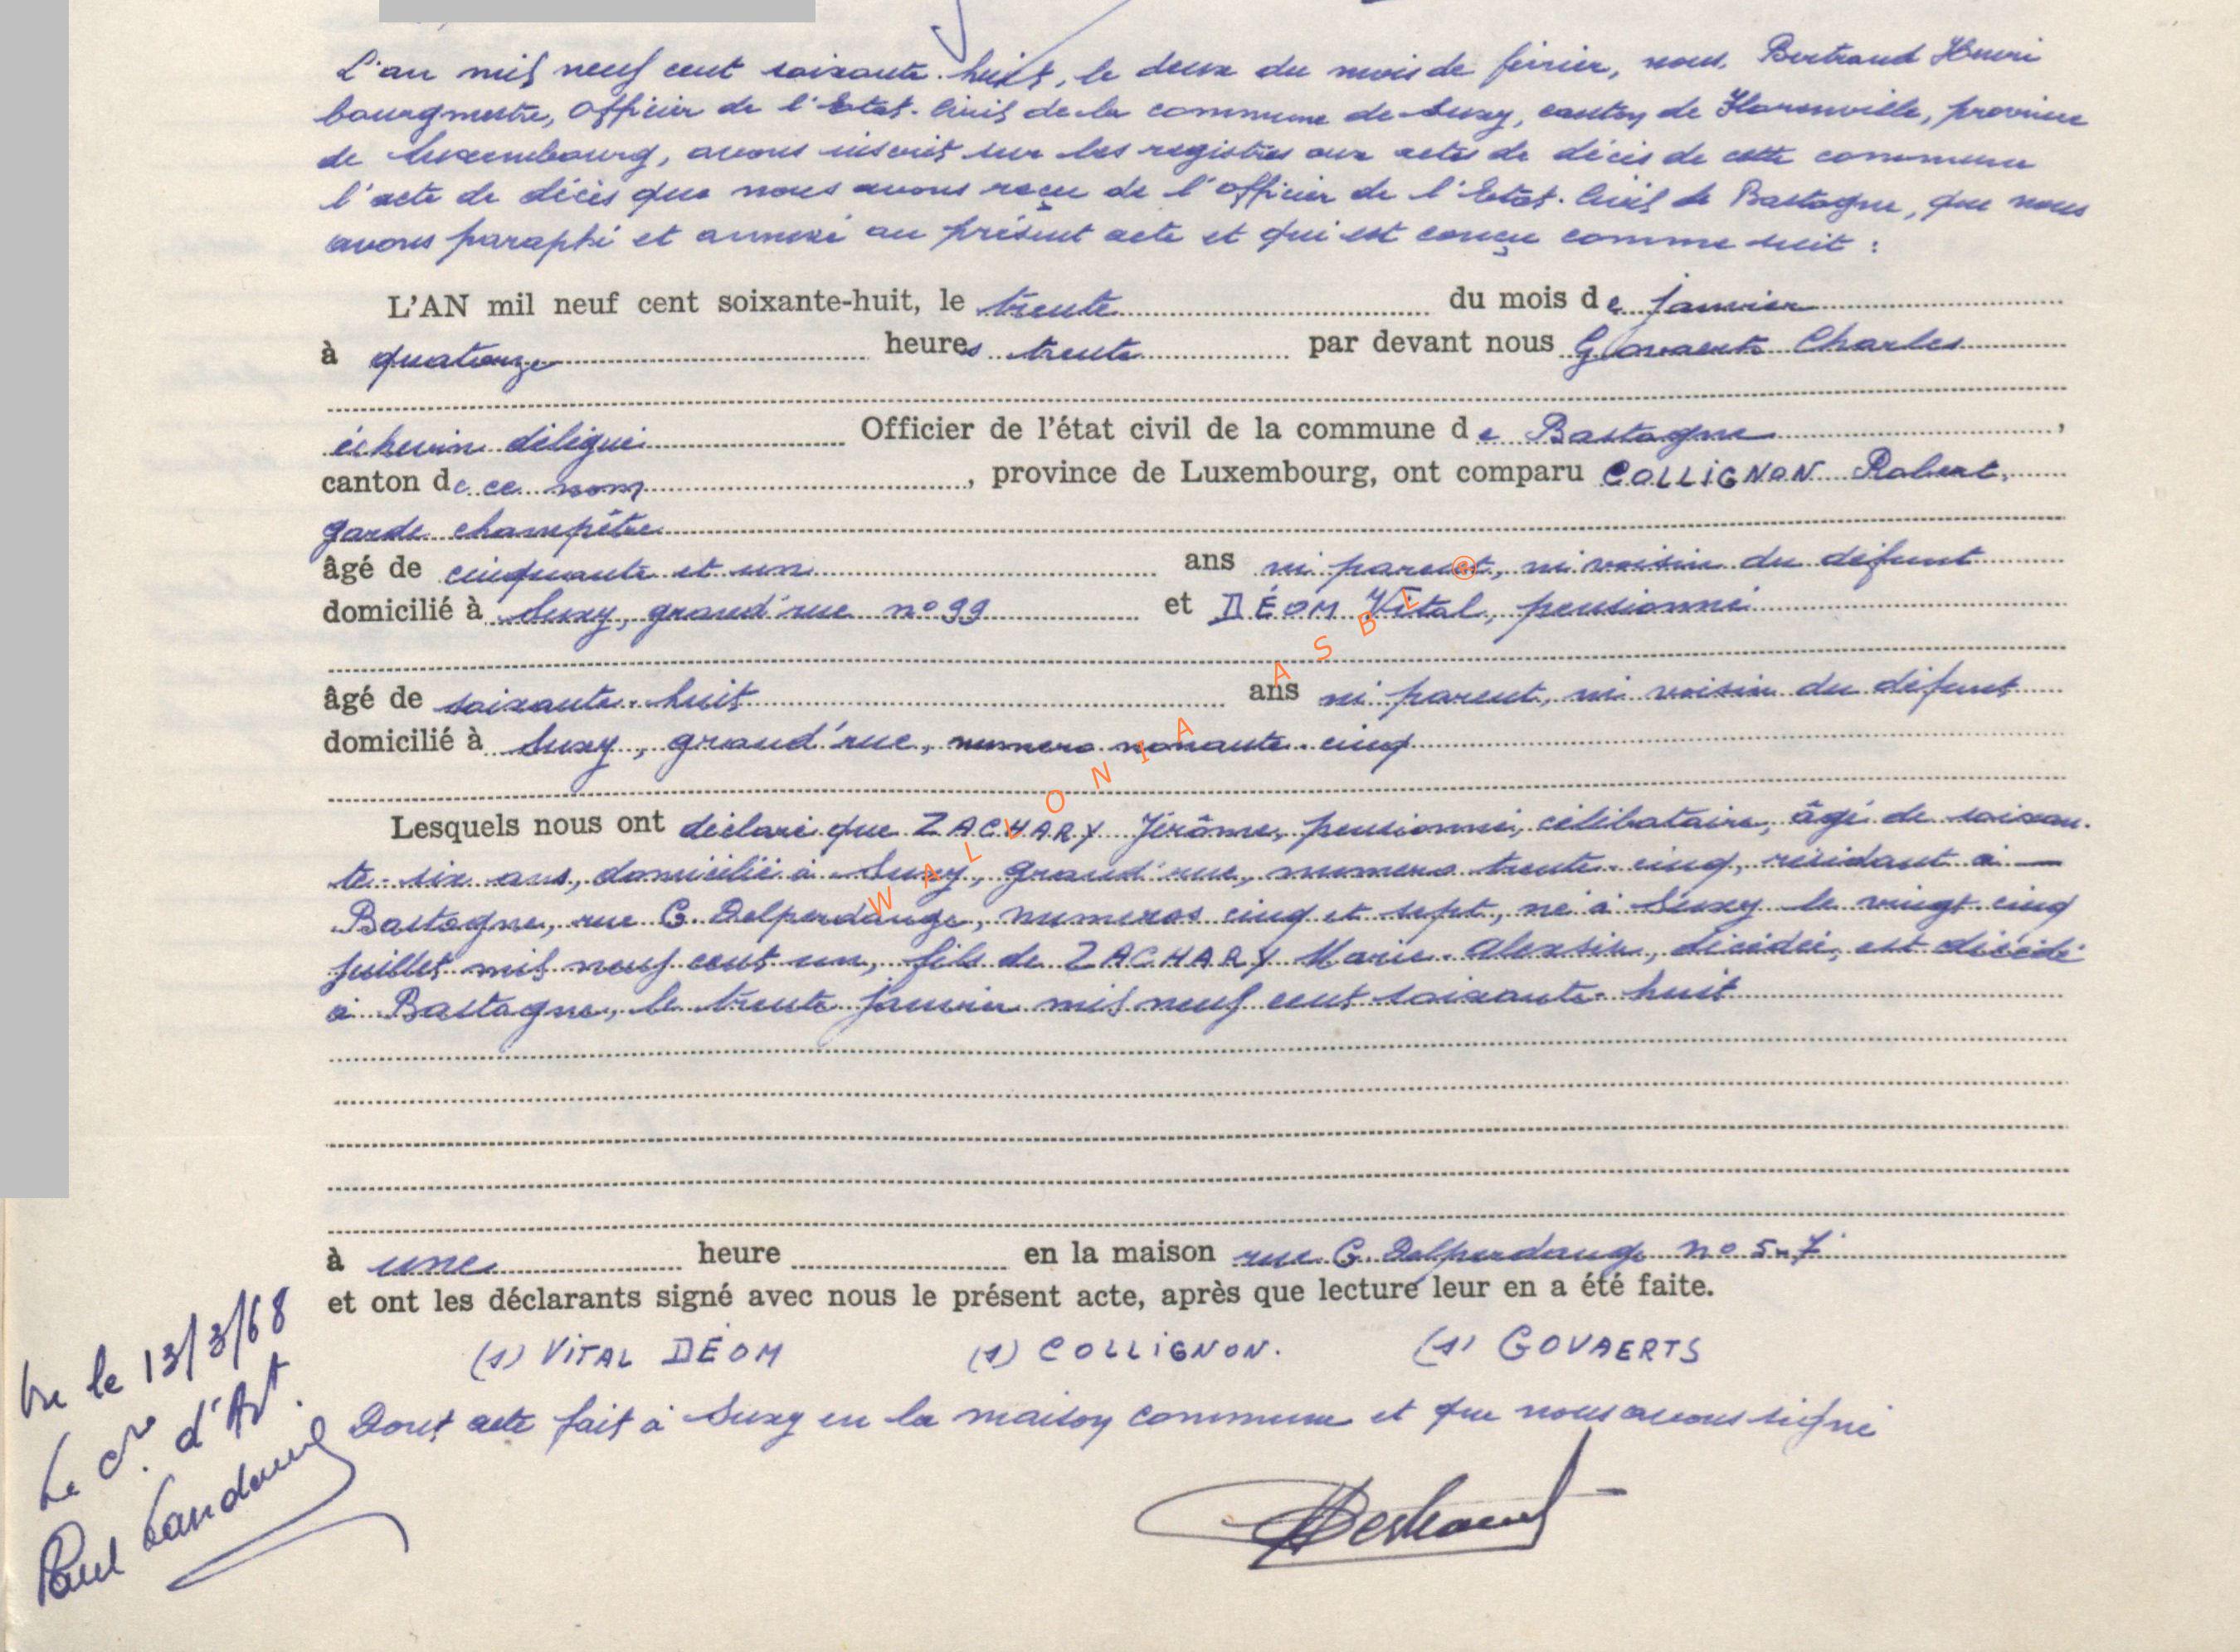 L'an mil neuf cent soixante-huit, le deux du mois de février, nous, Bertrand Henri
bourgmestre, Officier de l'Etat-Civil de la commune de Suxy, canton de Florenville, province
de Luxembourg, avons inscrit sur les registres aux actes de décès de cette commune
l'acte de décès que nous avons reçu de l'Officier de l'Etat-Civil de Bastogne, que nous
avons paraphé et annexé au présent acte et qui est conçu comme suit :
L'AN mil neuf cent soixante-huit, le trente du mois de janvier
à quatorze heures trente par devant nous Govaerts Charles
échevin délégué Officier de l'état civil de la commune de Bastogne,
canton de ce nom, province de Luxembourg, ont comparu COLLIGNON Robert,
garde champêtre
âgé de cinquante et un ans ni parent, ni voisin du défunt
domicilié à Suxy, grand'rue no 99 et DÉOM Vital, pensionné
âgé de soixante-huit ans ni parent, ni voisin du défunt
domicilié à Suxy, grand'rue, numero nonante-cinq
Lesquels nous ont déclaré que ZACHARY Jérôme, pensionné, célibataire, âgé de soixan-
te-six ans, domicilié à Suxy, grand'rue, numero trente-cinq, résidant à —
Bastogne, rue G. Delperdange, numeros cinq et sept, né à Suxy le vingt-cinq
juillet mil neuf cent un, fils de ZACHARY Marie-Alexsin, décédée, est décédé
à Bastogne, le trente janvier mil neuf cent soixante-huit
à une heure en la maison rue G. Delperdange no 5-7
et ont les déclarants signé avec nous le présent acte, après que lecture leur en a été faite.
(s) VITAL DÉOM (s) COLLIGNON. (s) GOVAERTS
Dont acte fait à Suxy en la maison commune et que nous avons signé
HBertrand
Vu le 13/3/68
Le Cre d'Art.
Paul
WALLONIA ASBL ®